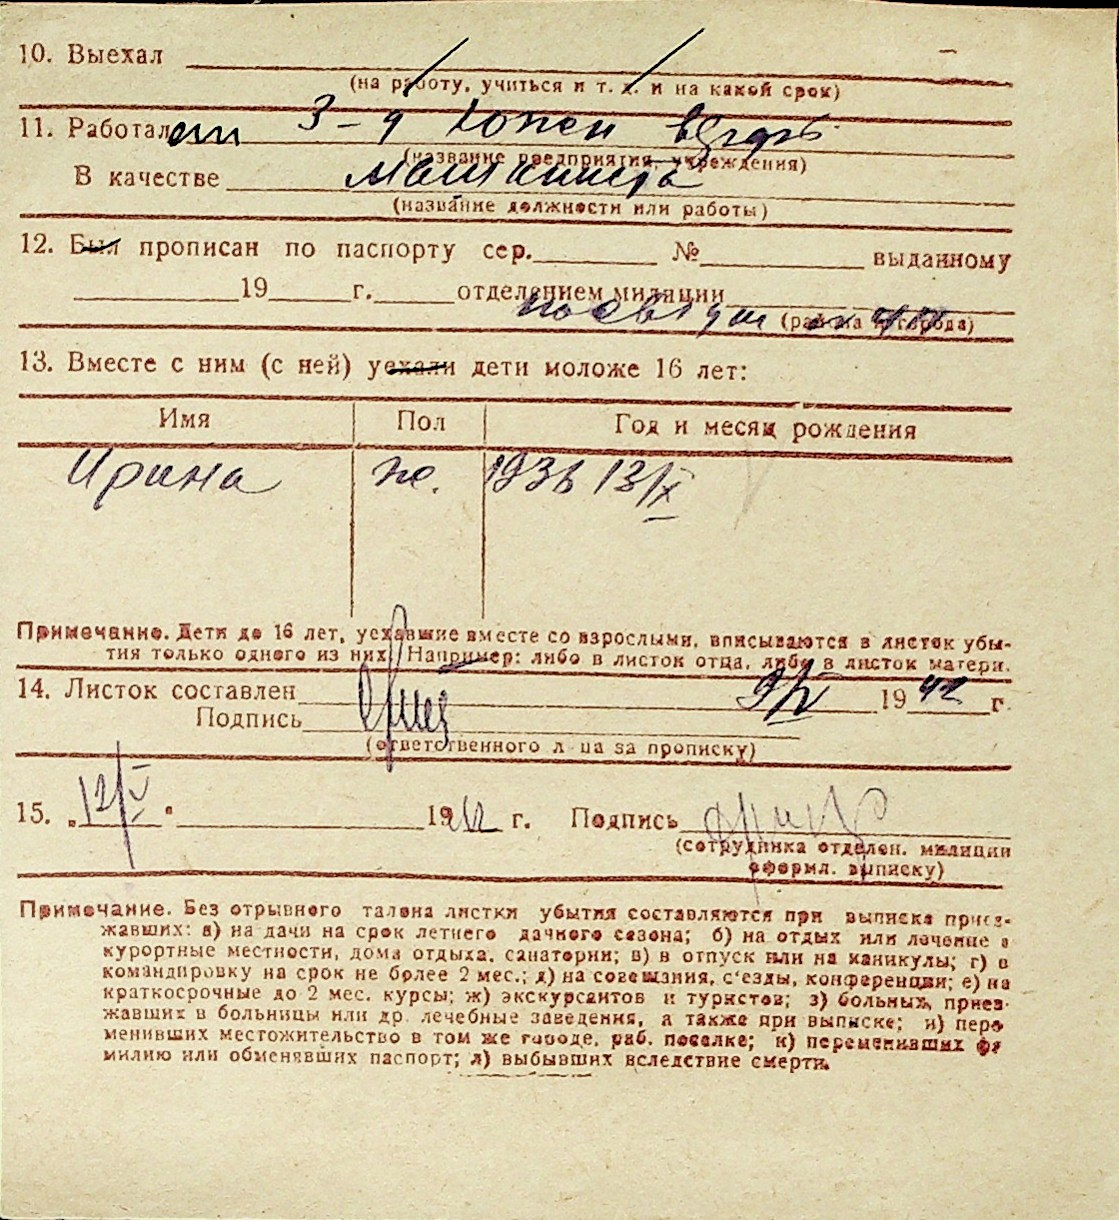 10. Выехал
(на работу, учиться и т. д. и на какой срок)
11. Работал
(название предприятия, учреждения)
В качестве
(название должности или работы)
12. Был прописан по паспорту сер. № выданному
19 г. отделением милиции
(района и города)
13. Вместе с ним (с ней) уехали дети моложе 16 лет:
Имя Пол Год и месяц рождения
Ирина ж. 1936 13/X
Примечание. Дети до 16 лет, уехавшие вместе со взрослыми, вписываются в листок убы-
тия только одного из них. Например: либо в листок отца, либо в листок матери.
14. Листок составлен 1942 г.
Подпись
(ответственного лица за прописку)
15. „12/V" 1942 г. Подпись
(сотрудника отделен. милиции
оформл. выписку)
Примечание. Без отрывного талона листки убытия составляются при выписке приез-
жавших: а) на дачи на срок летнего дачного сезона; б) на отдых или лечение в
курортные местности, дома отдыха, санатории; в) в отпуск или на каникулы; г) в
командировку на срок не более 2 мес.; д) на совещания, с'езды, конференции; е) на
краткосрочные до 2 мес. курсы; ж) экскурсантов и туристов; з) больных, приез-
жавших в больницы или др. лечебные заведения, а также при выписке; и) пере
менивших местожительство в том же городе, раб. поселке; к) переменивших фа
милию или обменявших паспорт; л) выбывших вследствие смерти.